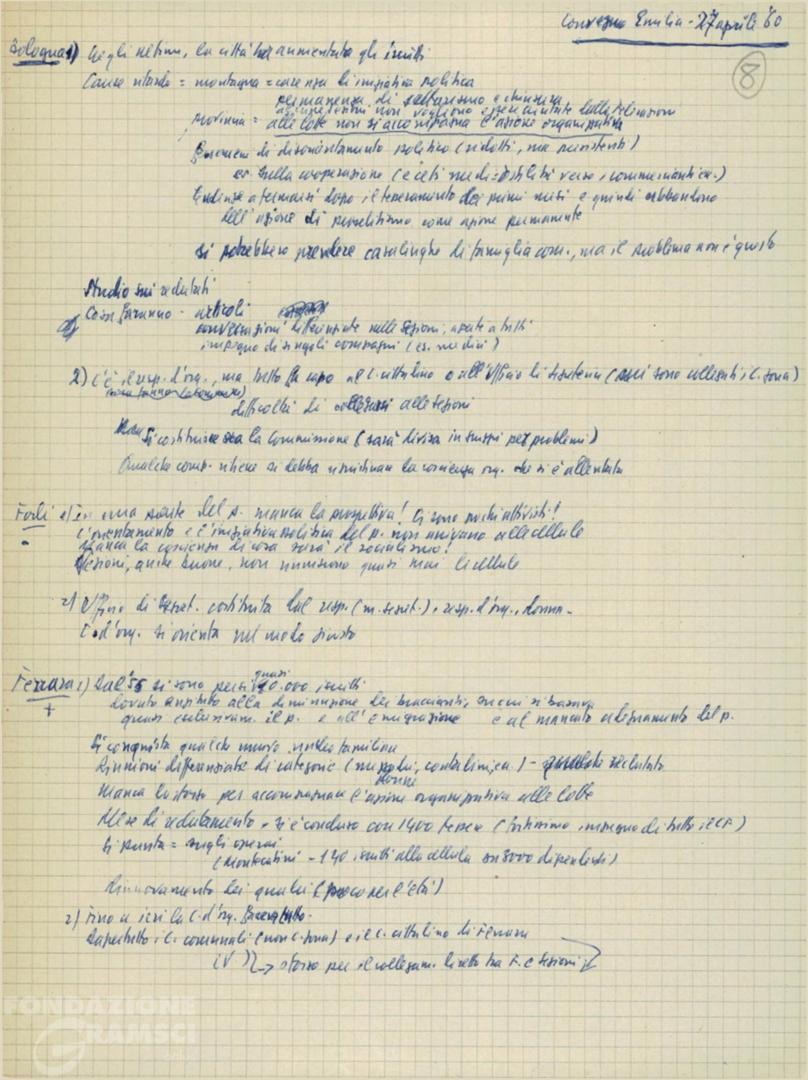 Convegno Emilia - 27 aprile '60
8
Bologna 1) Negli ultimi, la città ha aumentato gli iscritti
Cause ritardo = montagna = carenza di iniziativa politica
permanenza di settarismo e chiusura
Provincia = alle lotte non si accompagna l'azione organizzativa
Fenomeni di disorientamento politico (ridotti, ma persistenti)
es. sulla cooperazione (e ceti medi = ostilità verso i commercianti ec.)
Tendenze a fermarsi dopo il tesseramento dei primi mesi e quindi abbandono
dell'azione di proselitismo come azione permanente
Si potrebbero prendere casalinghe di famiglia com., ma il problema non è questo
Studio sui reclutati
Cosa faranno - articoli
conversazioni differenziate nelle sezioni, aperte a tutti
impegno di singoli compagni (es. medici)
2) C'è il resp. d'org., ma tutto fa capo al C. cittadino e all'Ufficio di segreteria ( sono collegati i C. zona)
difficoltà di collegarsi alle sezioni
Si costituisce ora la Commissione (sarà divisa in gruppi per problemi)
Qualche comp. ritiene si debba ripristinare la coscienza org. che si è allentata
Forlì 1) In una parte del p. manca la prospettiva! Ci sono pochi attivisti!
L'orientamento e l'iniziativa politica del p. non arrivano alle cellule
Manca la coscienza di cosa sarà il socialismo!
Sezioni, anche buone, non riuniscono quasi mai le cellule
2) Uff. di Segret. costituita dal resp. (m. segret.), resp. d'org., donna -
C. d'org. si orienta nel modo giusto
Ferrara 1) Dal '56 si sono persi quasi 20.000 iscritti
dovuto anzitutto alla diminuzione dei braccianti, su cui si basava
quasi esclusivam. il p. e all'emigrazione e al mancato adeguamento del p.
Si conquista qualche nuovo nucleo familiare
Riunioni differenziate di categorie (mezzadri, contadini, ec.) - qualche reclutato
donne
Manca lo sforzo per accompagnare l'azione organizzativa alle lotte
Mese di reclutamento - si è concluso con 1400 tessere (fortissimo impegno di tutto il CF)
Si punta = sugli operai
(Montecatini - 140 iscritti alla cellula su 3000 dipendenti)
Rinnovamento dei quadri (poco per l'età)
2) Fino a ieri la C. d'org. faceva tutto -
Dappertutto i C. comunali (non C. zona) e il C. cittadino di Ferrara
sforzo per il collegam. diretto tra F. e sezioni
FONDAZIONE
GRAMSCI